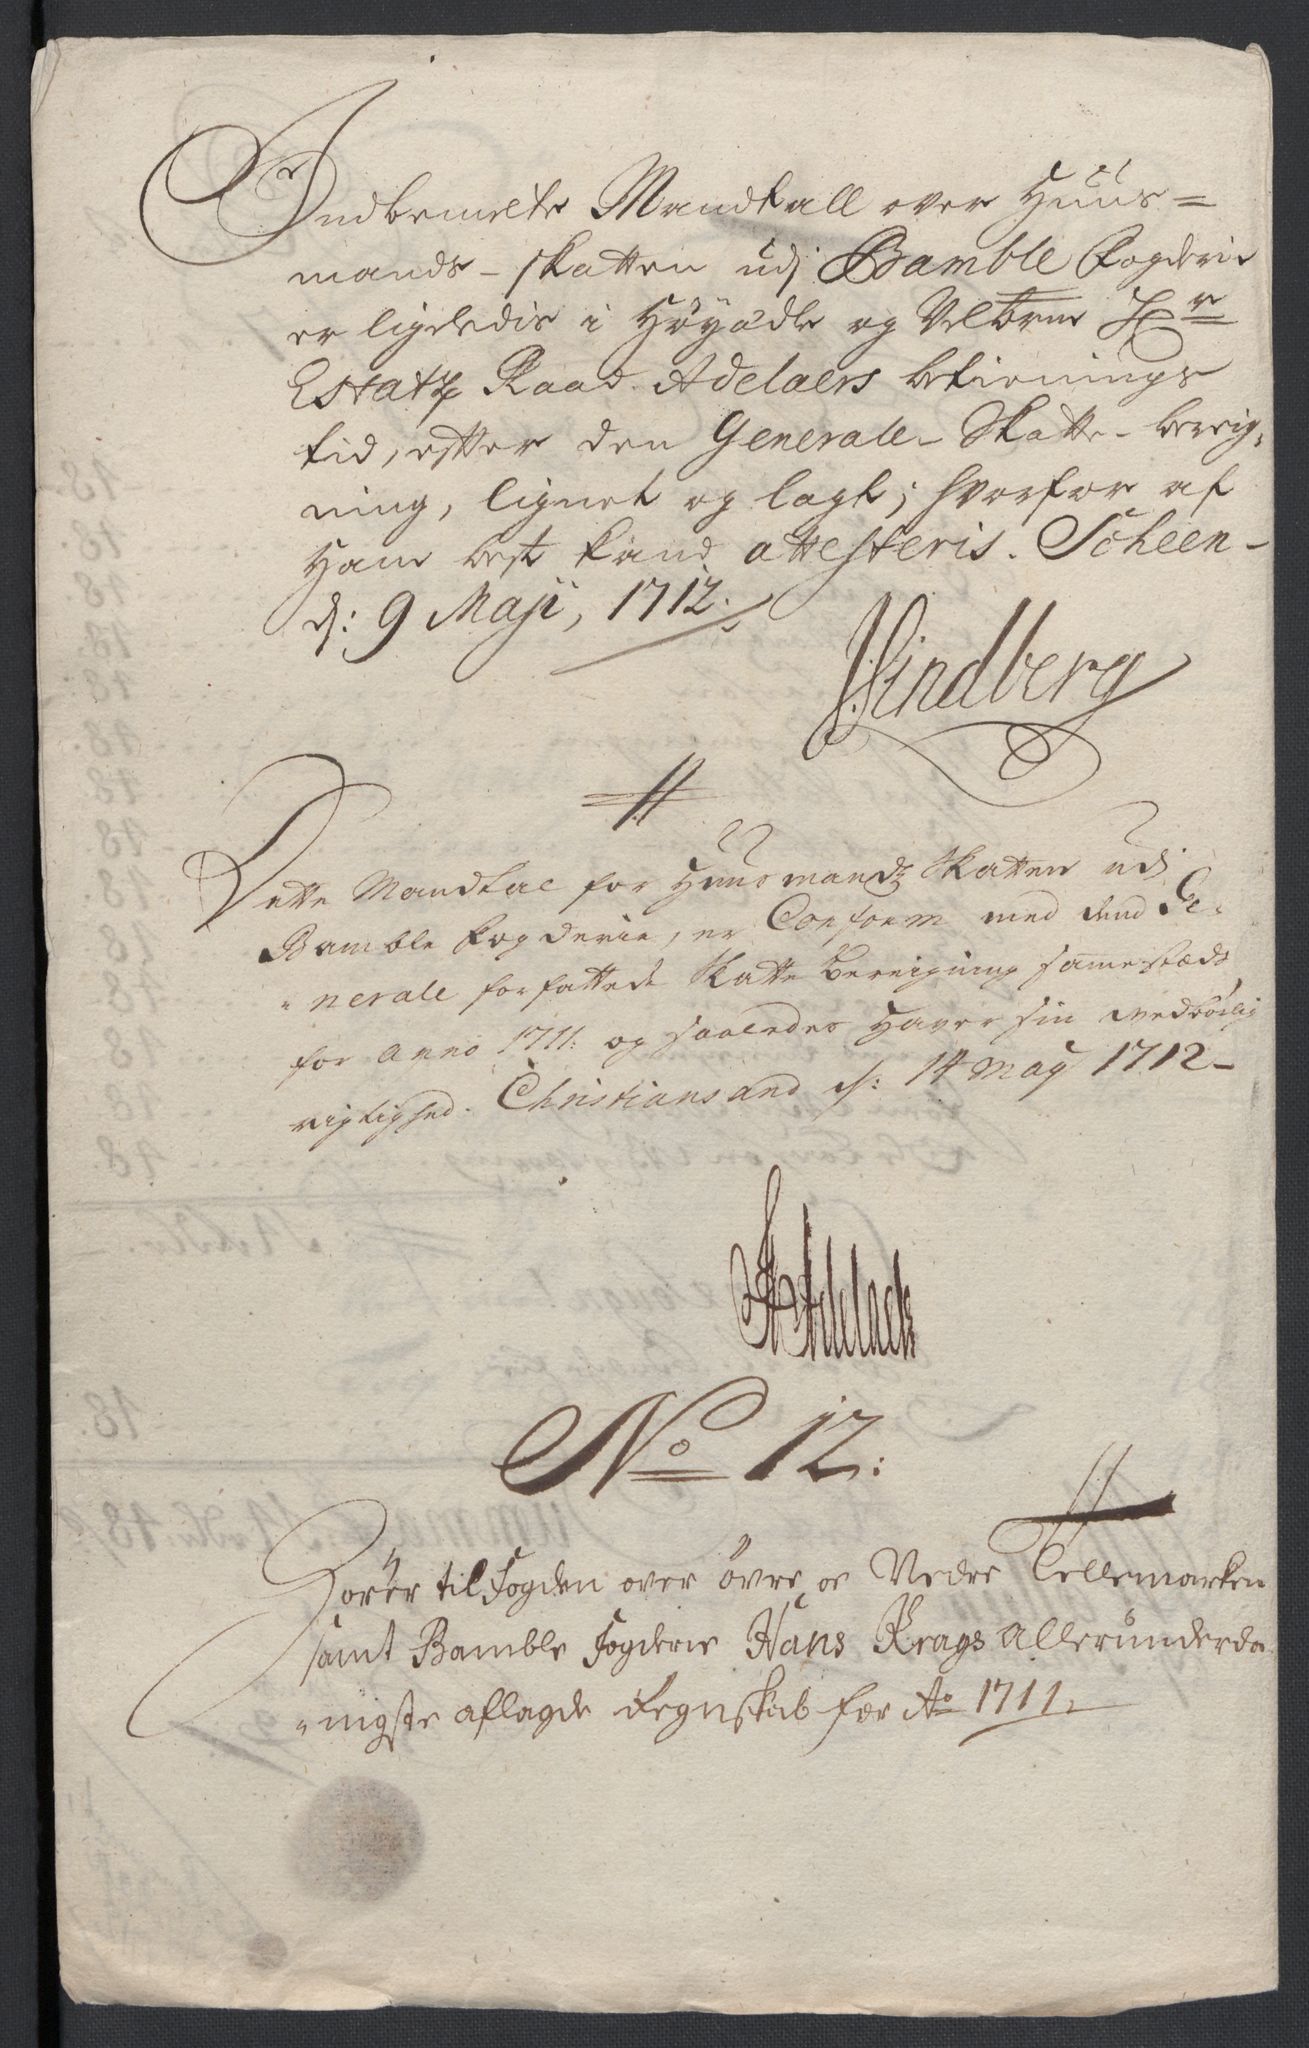 Indbemelte Mandtall over Huus=
mands-skatten udj Bamble Fogderie
er ligeledis i Höyædle og Velbrne Hr
Estatz Raad Adelaers betienings
tid, efter den Generale-Skatte-bereig,
ning, lignet og lagt; hvorfor af
Ham best kand attesteris. Scheen-
dj: 9 Maji, 1712.
Lindberg
Dette Mandtal for Huusmandz Skatten udj
Bamble Fogderie, er Conform med dend Ge-
nerale forfattede Skatte bereigning samestæds
for anno 1711: og saaledes Haver sin vedbörlig
rigtighed. Christiansand d: 14 May 1712-
Adelaer
No 12:
Hörer til Fogden over övre oc Nedre Tellemarken
samt Bamble Fogderie Hans Krags Allerunderda
nigste aflagde Regnskab for Ao 1711